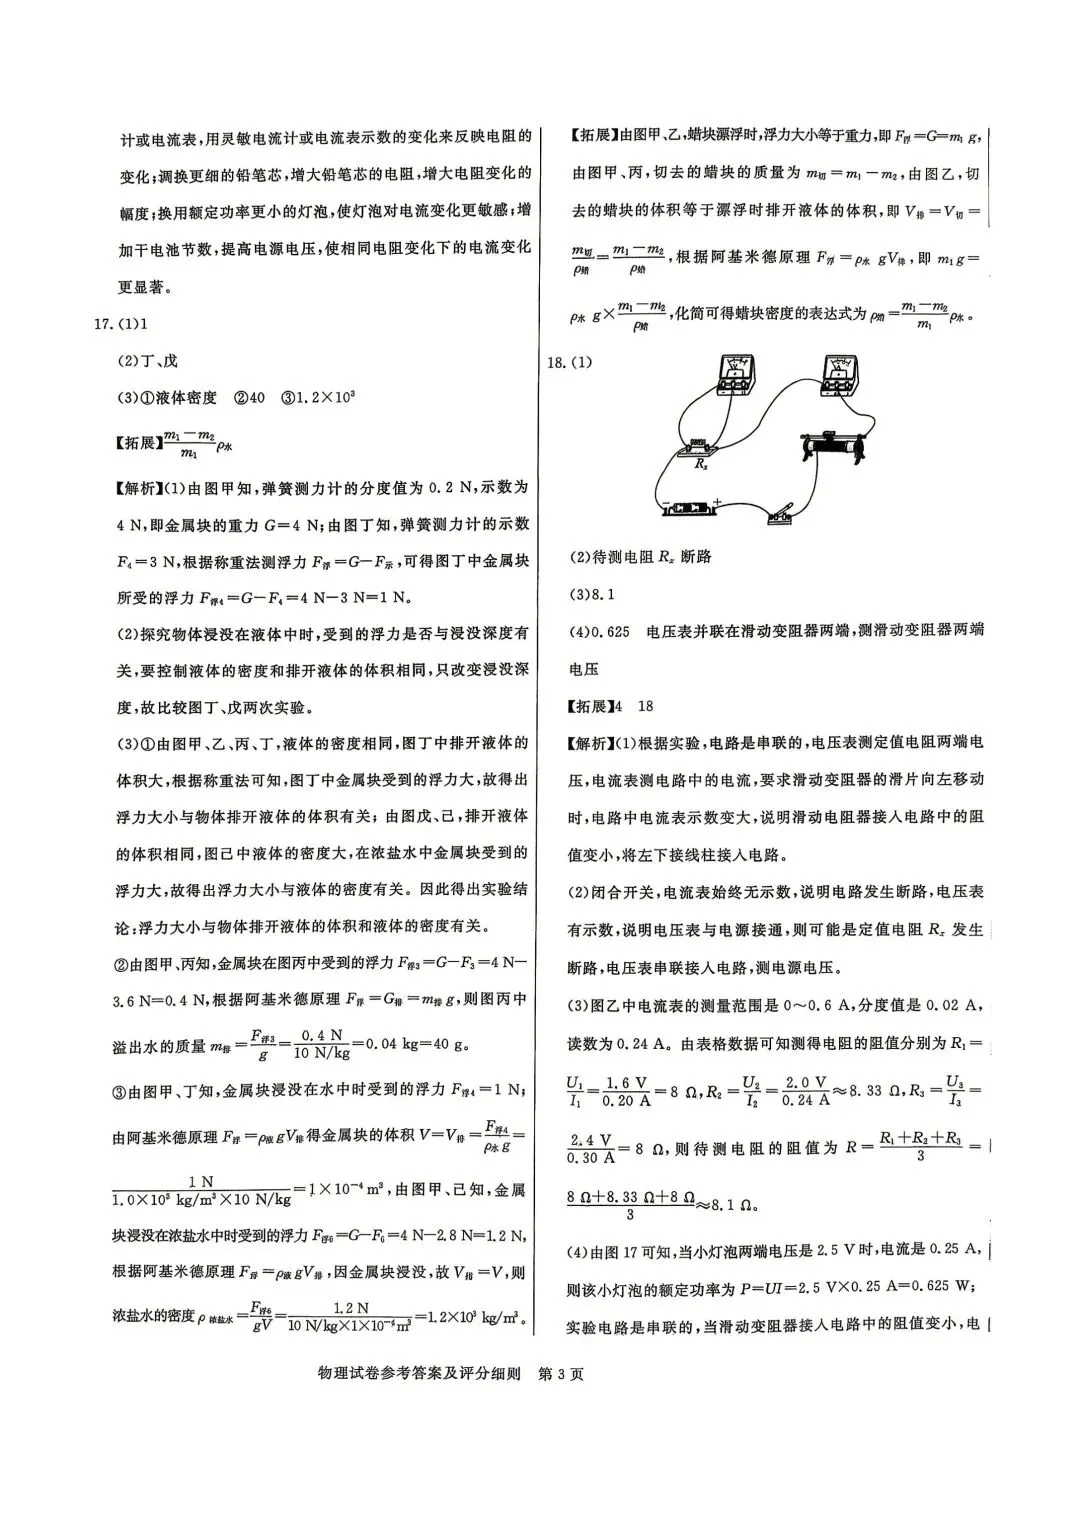 计或电流表,用灵敏电流计或电流表示数的变化来反映电阻的
变化;调换更细的铅笔芯,增大铅笔芯的电阻,增大电阻变化的
幅度;换用额定功率更小的灯泡,使灯泡对电流变化更敏感;增
加干电池节数,提高电源电压,使相同电阻变化下的电流变化
更显著。
17.(1)1
(2)丁、戊
(3)①液体密度 ②40 ③1.2×10³
【拓展】(m₁-m₂)/m₁ ρ水
【解析】(1)由图甲知,弹簧测力计的分度值为 0.2 N,示数为
4 N,即金属块的重力 G=4 N;由图丁知,弹簧测力计的示数
F₄=3 N,根据称重法测浮力 F浮=G-F示,可得图丁中金属块
所受的浮力 F浮4=G-F₄=4 N-3 N=1 N。
(2)探究物体浸没在液体中时,受到的浮力是否与浸没深度有
关,要控制液体的密度和排开液体的体积相同,只改变浸没深
度,故比较图丁、戊两次实验。
(3)①由图甲、乙、丙、丁,液体的密度相同,图丁中排开液体的
体积大,根据称重法可知,图丁中金属块受到的浮力大,故得出
浮力大小与物体排开液体的体积有关;由图戊、己,排开液体
的体积相同,图己中液体的密度大,在浓盐水中金属块受到的
浮力大,故得出浮力大小与液体的密度有关。因此得出实验结
论:浮力大小与物体排开液体的体积和液体的密度有关。
②由图甲、丙知,金属块在图丙中受到的浮力 F浮3=G-F₃=4 N-
3.6 N=0.4 N,根据阿基米德原理 F浮=G排=m排g,则图丙中
溢出水的质量 m排=F浮3/g=0.4 N/10 N/kg=0.04 kg=40 g。
③由图甲、丁知,金属块浸没在水中时受到的浮力 F浮4=1 N;
由阿基米德原理 F浮=ρ液gV排得金属块的体积 V=V排=F浮4/ρ水g=
1 N/1.0×10³ kg/m³×10 N/kg=1×10⁻⁴ m³,由图甲、己知,金属
块浸没在浓盐水中时受到的浮力 F浮6=G-F₆=4 N-2.8 N=1.2 N,
根据阿基米德原理 F浮=ρ液gV排,因金属块浸没,故 V排=V,则
浓盐水的密度 ρ浓盐水=F浮6/gV=1.2 N/10 N/kg×1×10⁻⁴ m³=1.2×10³ kg/m³。
【拓展】由图甲、乙,蜡块漂浮时,浮力大小等于重力,即 F浮=G=m₁g,
由图甲、丙,切去的蜡块的质量为 m切=m₁-m₂,由图乙,切
去的蜡块的体积等于漂浮时排开液体的体积,即 V排=V切=
m切/ρ蜡=(m₁-m₂)/ρ蜡,根据阿基米德原理 F浮=ρ水gV排,即 m₁g=
ρ水g×(m₁-m₂)/ρ蜡,化简可得蜡块密度的表达式为 ρ蜡=(m₁-m₂)/m₁ ρ水。
18.(1)
A
Rₓ
- +
(2)待测电阻 Rₓ 断路
(3)8.1
(4)0.625 电压表并联在滑动变阻器两端,测滑动变阻器两端
电压
【拓展】4 18
【解析】(1)根据实验,电路是串联的,电压表测定值电阻两端电
压,电流表测电路中的电流,要求滑动变阻器的滑片向左移动
时,电路中电流表示数变大,说明滑动电阻器接入电路中的阻
值变小,将左下接线柱接入电路。
(2)闭合开关,电流表始终无示数,说明电路发生断路,电压表
有示数,说明电压表与电源接通,则可能是定值电阻 Rₓ 发生
断路,电压表串联接入电路,测电源电压。
(3)图乙中电流表的测量范围是 0~0.6 A,分度值是 0.02 A,
读数为 0.24 A。由表格数据可知测得电阻的阻值分别为 R₁=
U₁/I₁=1.6 V/0.20 A=8 Ω,R₂=U₂/I₂=2.0 V/0.24 A≈8.33 Ω,R₃=U₃/I₃=
2.4 V/0.30 A=8 Ω,则待测电阻的阻值为 R=(R₁+R₂+R₃)/3=
(8 Ω+8.33 Ω+8 Ω)/3≈8.1 Ω。
(4)由图 17 可知,当小灯泡两端电压是 2.5 V 时,电流是 0.25 A,
则该小灯泡的额定功率为 P=UI=2.5 V×0.25 A=0.625 W;
实验电路是串联的,当滑动变阻器接入电路中的阻值变小,电
物理试卷参考答案及评分细则 第 3 页